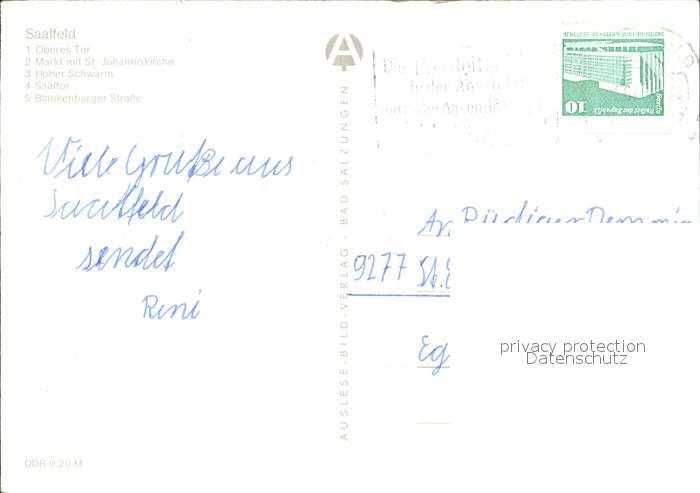 Saalfeld
1 Oberes Tor
2 Markt mit St. Johanniskirche
3 Hoher Schwarm
4 Saaltor
5 Blankenburger Straße
Viele Grüße aus
Saalfeld
sendet
René
DDR 0,20 M
AUSLESE-BILD-VERLAG · BAD SALZUNGEN
Die Postleitz
in der Anschr
und der Absender
DEUTSCHE DEMOKRATISCHE REPUBLIK
Berlin
Palast der Republik
10
An Rüdiger
9277 St.
Eg
privacy protection
Datenschutz